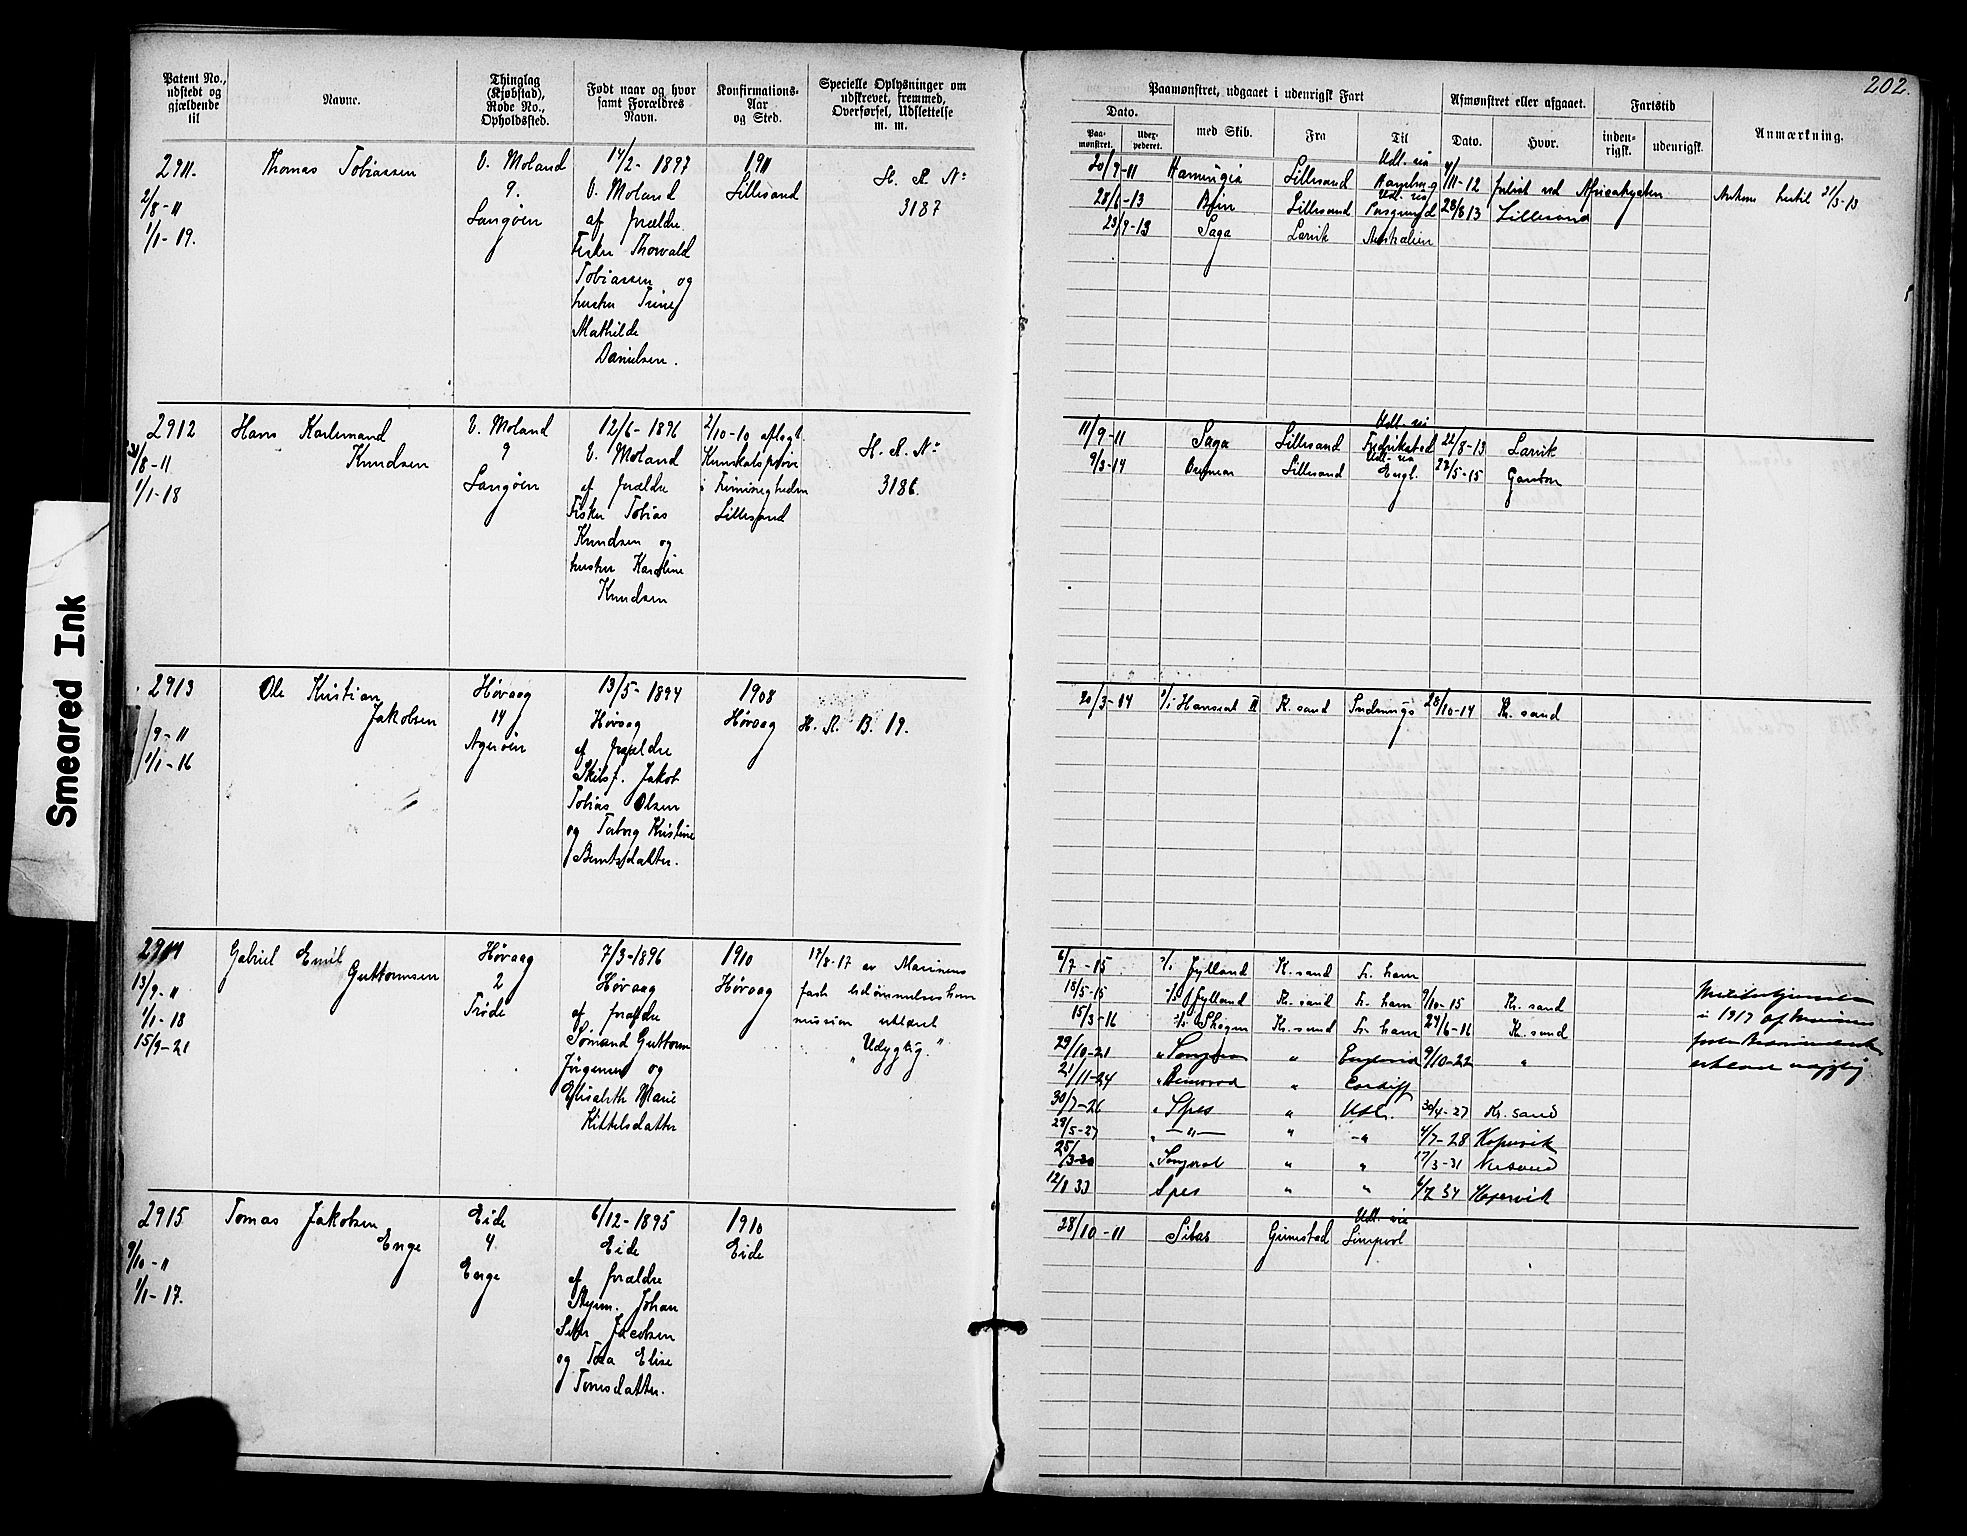 202.
Smeared Ink
Patent No., udstedt og gjældende til
Navne.
Thinglag (Kjøbstad), Rode No., Opholdssted.
Født naar og hvor samt Forældres Navn.
Konfirmations-Aar og Sted.
Specielle Oplysninger om udskrevet, fremmed, Overførsel, Udslettelse m. m.
Paamønstret, udgaaet i udenrigsk Fart
Dato.
Paamønstret.
Uderpederet.
med Skib.
Fra
Til
Afmønstret eller afgaaet.
Dato.
Hvor.
Fartstid
indenrigsk.
udenrigsk.
Anmærkning.
2911.
2/8-11
1/1-19.
Thomas Tobiassen
V. Moland
9.
Langøen
14/2-1897
V. Moland
af forældre
Fisker Thorvald
Tobiassen og
hustru Trine
Mathilde
Danielsen.
1911
Lillesand
H. R. No
3187
20/9-11 Lillesand Udt. via
28/6-13 Lillesand Udt. via Porsgrund 28/8 13 Lillesand
23/9-13 Saga Larvik Australien
2912
/8-11
1/1-18
Hans Karlemand
Knudsen
V. Moland
9
Langøen
12/6-1896
V. Moland
af forældre
Fisker Tobias
Knudsen og
hustru Karoline
Knudsen
2/10-10 aflagt
Kunskabsprøve
i Frimenigheden
Lillesand
H. R. No
3186.
11/9-11 Saga Lillesand Udt. via Fredrikstad 22/8-13 Larvik
9/3-14 Lillesand Udt. via Engl. 22/5-15
2913
/9-11
1/1-16
Ole Kristian
Jakobsen
Høvaag
14
Agerøen
13/5-1894
Høvaag
af forældre
Skibsf. Jakob
Tobias Olsen
og Torborg Kristine
Berntsdatter.
1908
Høvaag
H. R. B. 19.
20/3-14 Hanseat II K. sand 28/10-14 Kr. sand
2914
13/9-11
1/1-18
15/9-21
Gabriel Emil
Guttormsen
Høvaag
2
Trøde
7/3-1896
Høvaag
af forældre
Sømand Guttorm
Jørgensen og
Elisabeth Marie
Kittelsdatter
1910
Høvaag
17/8-17 av Marinens
faste bedømmelseskom
mission erklæret
"Udygtig."
6/7-15 Jylland K. sand Fr. havn
18/5-15 Jylland Kr. sand Fr. havn 9/10-15 Kr. sand
15/3-16 Skogen Kr. sand Fr. havn 24/6-16 Kr. sand
29/10-21 " England 9/10-22 "
21/11-24 " Cardiff
30/7-26 " Spes " Utl. 30/4-27 Kr. sand
28/5-27 " —"— " -"- 4/7-28 Kopervik
25/3-30 " " 17/3-31
12/1 33 Spes " " 6/7 34 Kopervik
i 1917 af Marinens
2915
9/10-11
1/1-17.
Tomas Jakobsen
Enge
Eide
4
Enge
6/12-1895
Eide
af forældre
Styrm. Johan
Jacobsen
og Tea Elise
Tomsdatter.
1910
Eide
28/10-11 Grimstad Udt. via Liverpool